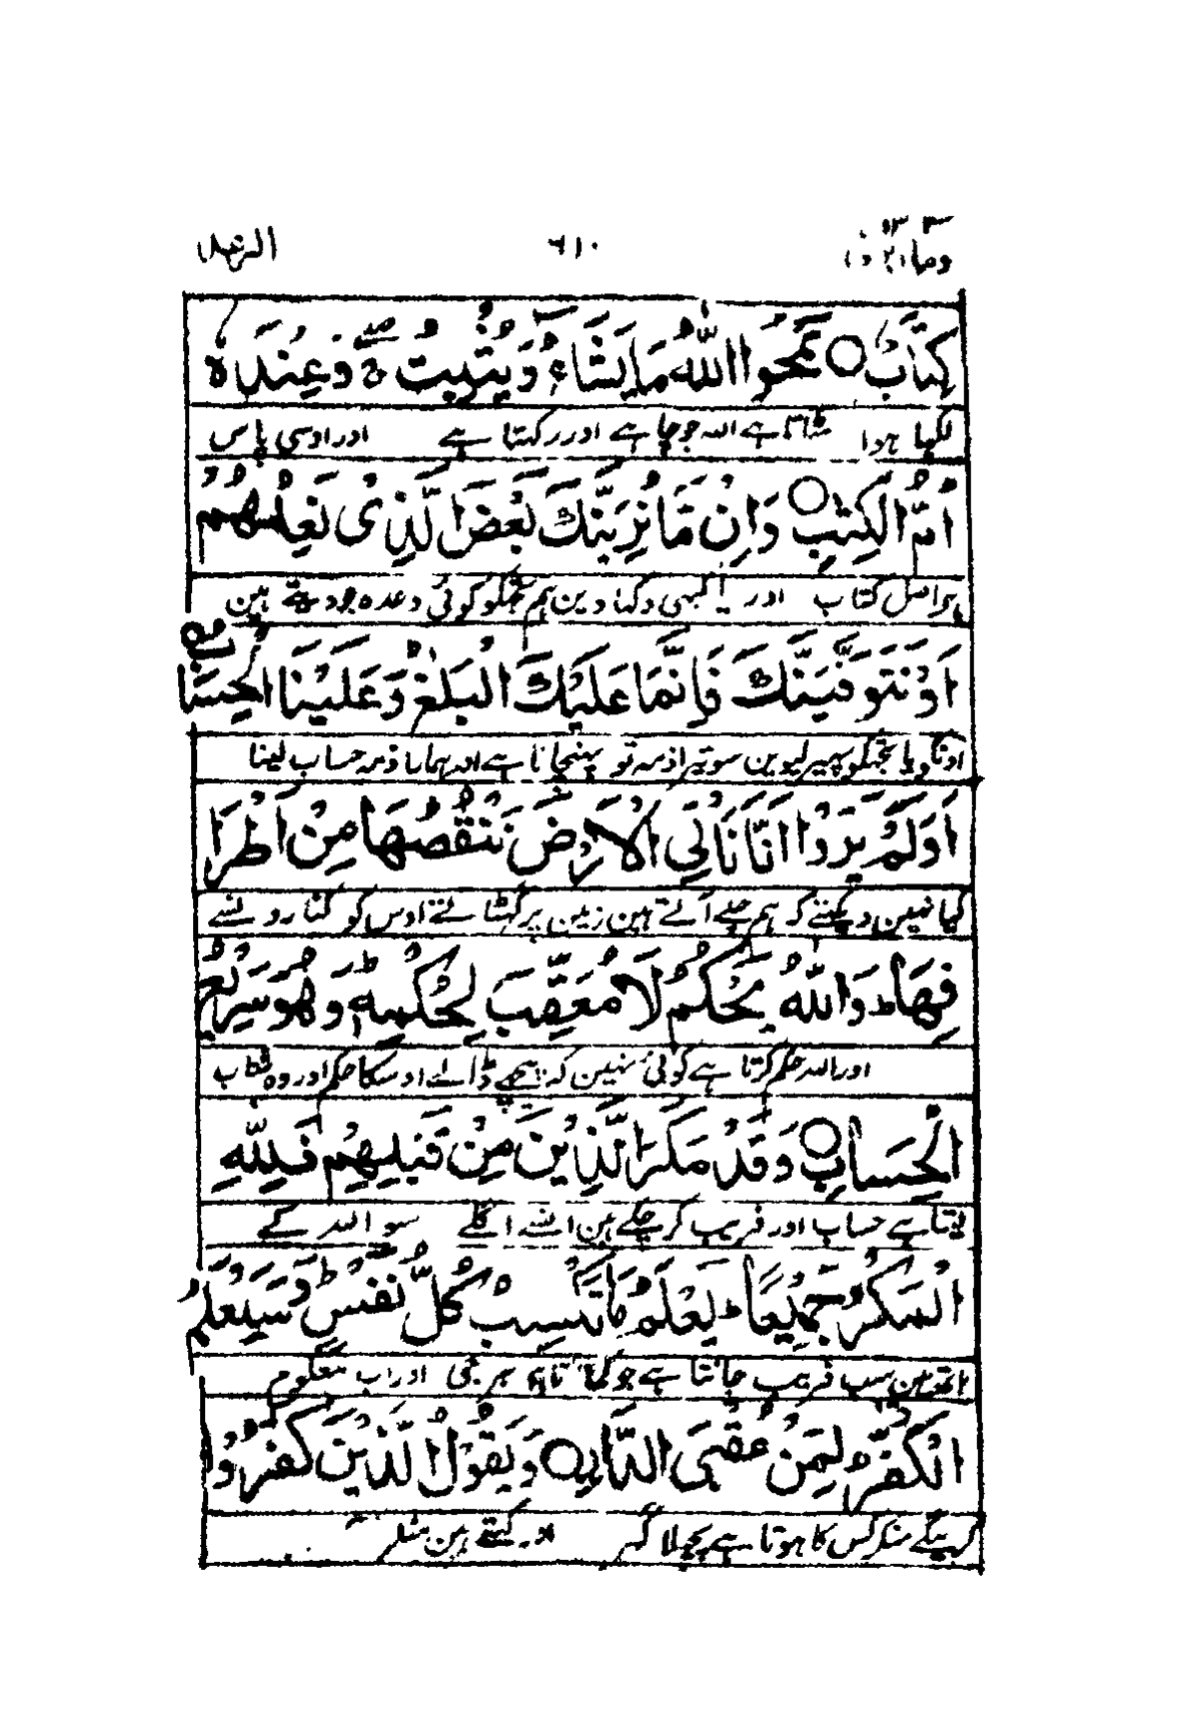 وما ١٣ ٦١٠ الرعد
كِتَابٌ ○ يَمْحُوا اللّٰهُ مَا يَشَآءُ وَيُثْبِتُ ۖ وَعِنْدَهٗ
لکھا ہوا مٹاتا ہے اللہ جو چاہے اور رکہتا ہے اور اوسی پاس
اُمُّ الْكِتٰبِ ○ وَاِنْ مَّا نُرِيَنَّكَ بَعْضَ الَّذِىْ نَعِدُهُمْ
ہے اصل کتاب اور یا کبہی دکہا دین ہم تجھکو کوئی وعدہ جو دیتے ہین
اَوْ نَتَوَفَّيَنَّكَ فَاِنَّمَا عَلَيْكَ الْبَلٰغُ وَعَلَيْنَا الْحِسَابُ
اونکو یا تجھکو بہیر لیوین سو تیرا ذمہ تو پہنچانا ہے اور ہمارا ذمہ حساب لینا
اَوَلَمْ يَرَوْا اَنَّا نَاْتِى الْاَرْضَ نَنْقُصُهَا مِنْ اَطْرَا
کیا نہین دیکہتے کہ ہم چلے آتے ہین زمین پر گہٹاتے اوس کو کنارونسے
فِهَا ؕ وَاللّٰهُ يَحْكُمُ لَا مُعَقِّبَ لِحُكْمِهٖ ؕ وَهُوَ سَرِيْعُ
اور اللہ حکم کرتا ہے کوئی نہین کہ پیچہے ڈالے اوسکا حکم اور وہ شتاب
الْحِسَابِ ○ وَقَدْ مَكَرَ الَّذِيْنَ مِنْ قَبْلِهِمْ فَلِلّٰهِ
لیتا ہے حساب اور فریب کر چکے ہین انسے اگلے سو اللہ کے
الْمَكْرُ جَمِيْعًا ؕ يَعْلَمُ مَا تَكْسِبُ كُلُّ نَفْسٍ ؕ وَسَيَعْلَمُ
ہاتھ مین سب فریب جانتا ہے جو کماتا ہے ہر جی اور اب معلوم
الْكُفّٰرُ لِمَنْ عُقْبَى الدَّارِ ○ وَيَقُوْلُ الَّذِيْنَ كَفَرُوْا
کرینگے منکر کس کا ہوتا ہے پچہلا گہر اور کہتے ہین منکر